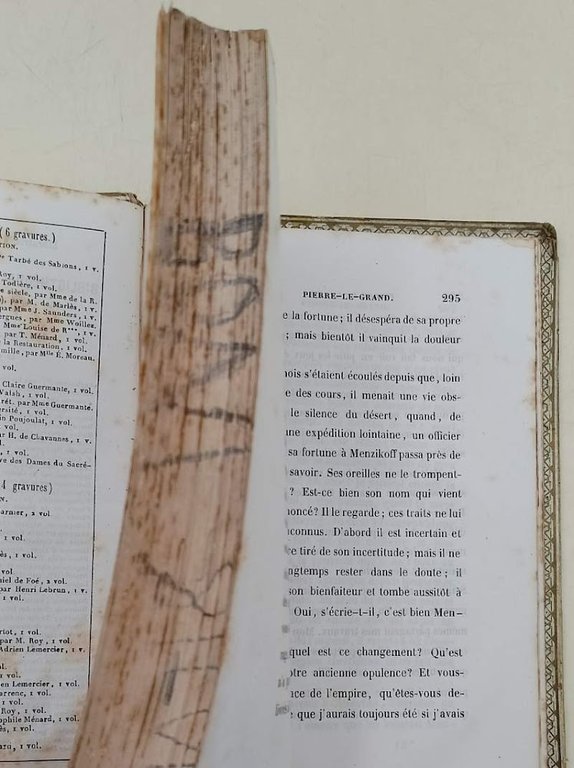 ( 6 gravures.)
TION.
Tarbé des Sablons, 1 v.
Roy, 1 vol.
Todière, 1 vol.
e siècle, par Mme de la R.
par M. de Marlès, 1 v.
ar Mme J. Saunders, 1 v.
ergues, par Mme Woillez.
Mme Louise de R***, 1 v.
par T. Ménard, 1 vol.
e la Restauration, 1 vol.
mille, par Mlle É. Moreau.
vol.
Claire Guermante, 1 vol.
Valsh, 1 vol.
rét. par Mme Guermante.
ersité, 1 vol.
in Poujoulat, 1 vol.
1 vol.
ar H. de Chavannes, 1 v.
, 1 vol.
ve des Dames du Sacré-
4 gravures)
N.
armier, 2 vol
1 vol.
ès, 1 vol.
vol
niel de Foé, 2 vol.
par Henri Lebrun, 1 vol.
1 vol.
riot, 1 vol.
par M. Roy, 1 vol.
Adrien Lemercier, 1 v.
l.
en Lemercier, 1 vol.
arrenc, 1 vol.
1 vol.
Roy, 1 vol.
ophile Ménard, 1 vol.
ès, 1 vol.
ard, 1 vol.
PIERRE-LE-GRAND. 295
e la fortune; il désespéra de sa propre
; mais bientôt il vainquit la douleur
nois s'étaient écoulés depuis que, loin
e des cours, il menait une vie obs-
le silence du désert, quand, de
une expédition lointaine, un officier
sa fortune à Menzikoff passa près de
savoir. Ses oreilles ne le trompent-
? Est-ce bien son nom qui vient
noncé? Il le regarde; ces traits ne lui
connus. D'abord il est incertain et
re tiré de son incertitude; mais il ne
ngtemps rester dans le doute; il
son bienfaiteur et tombe aussitôt à
Oui, s'écrie-t-il, c'est bien Men-
quel est ce changement? Qu'est
otre ancienne opulence? Et vous-
nce de l'empire, qu'êtes-vous de-
e que j'aurais toujours été si j'avais